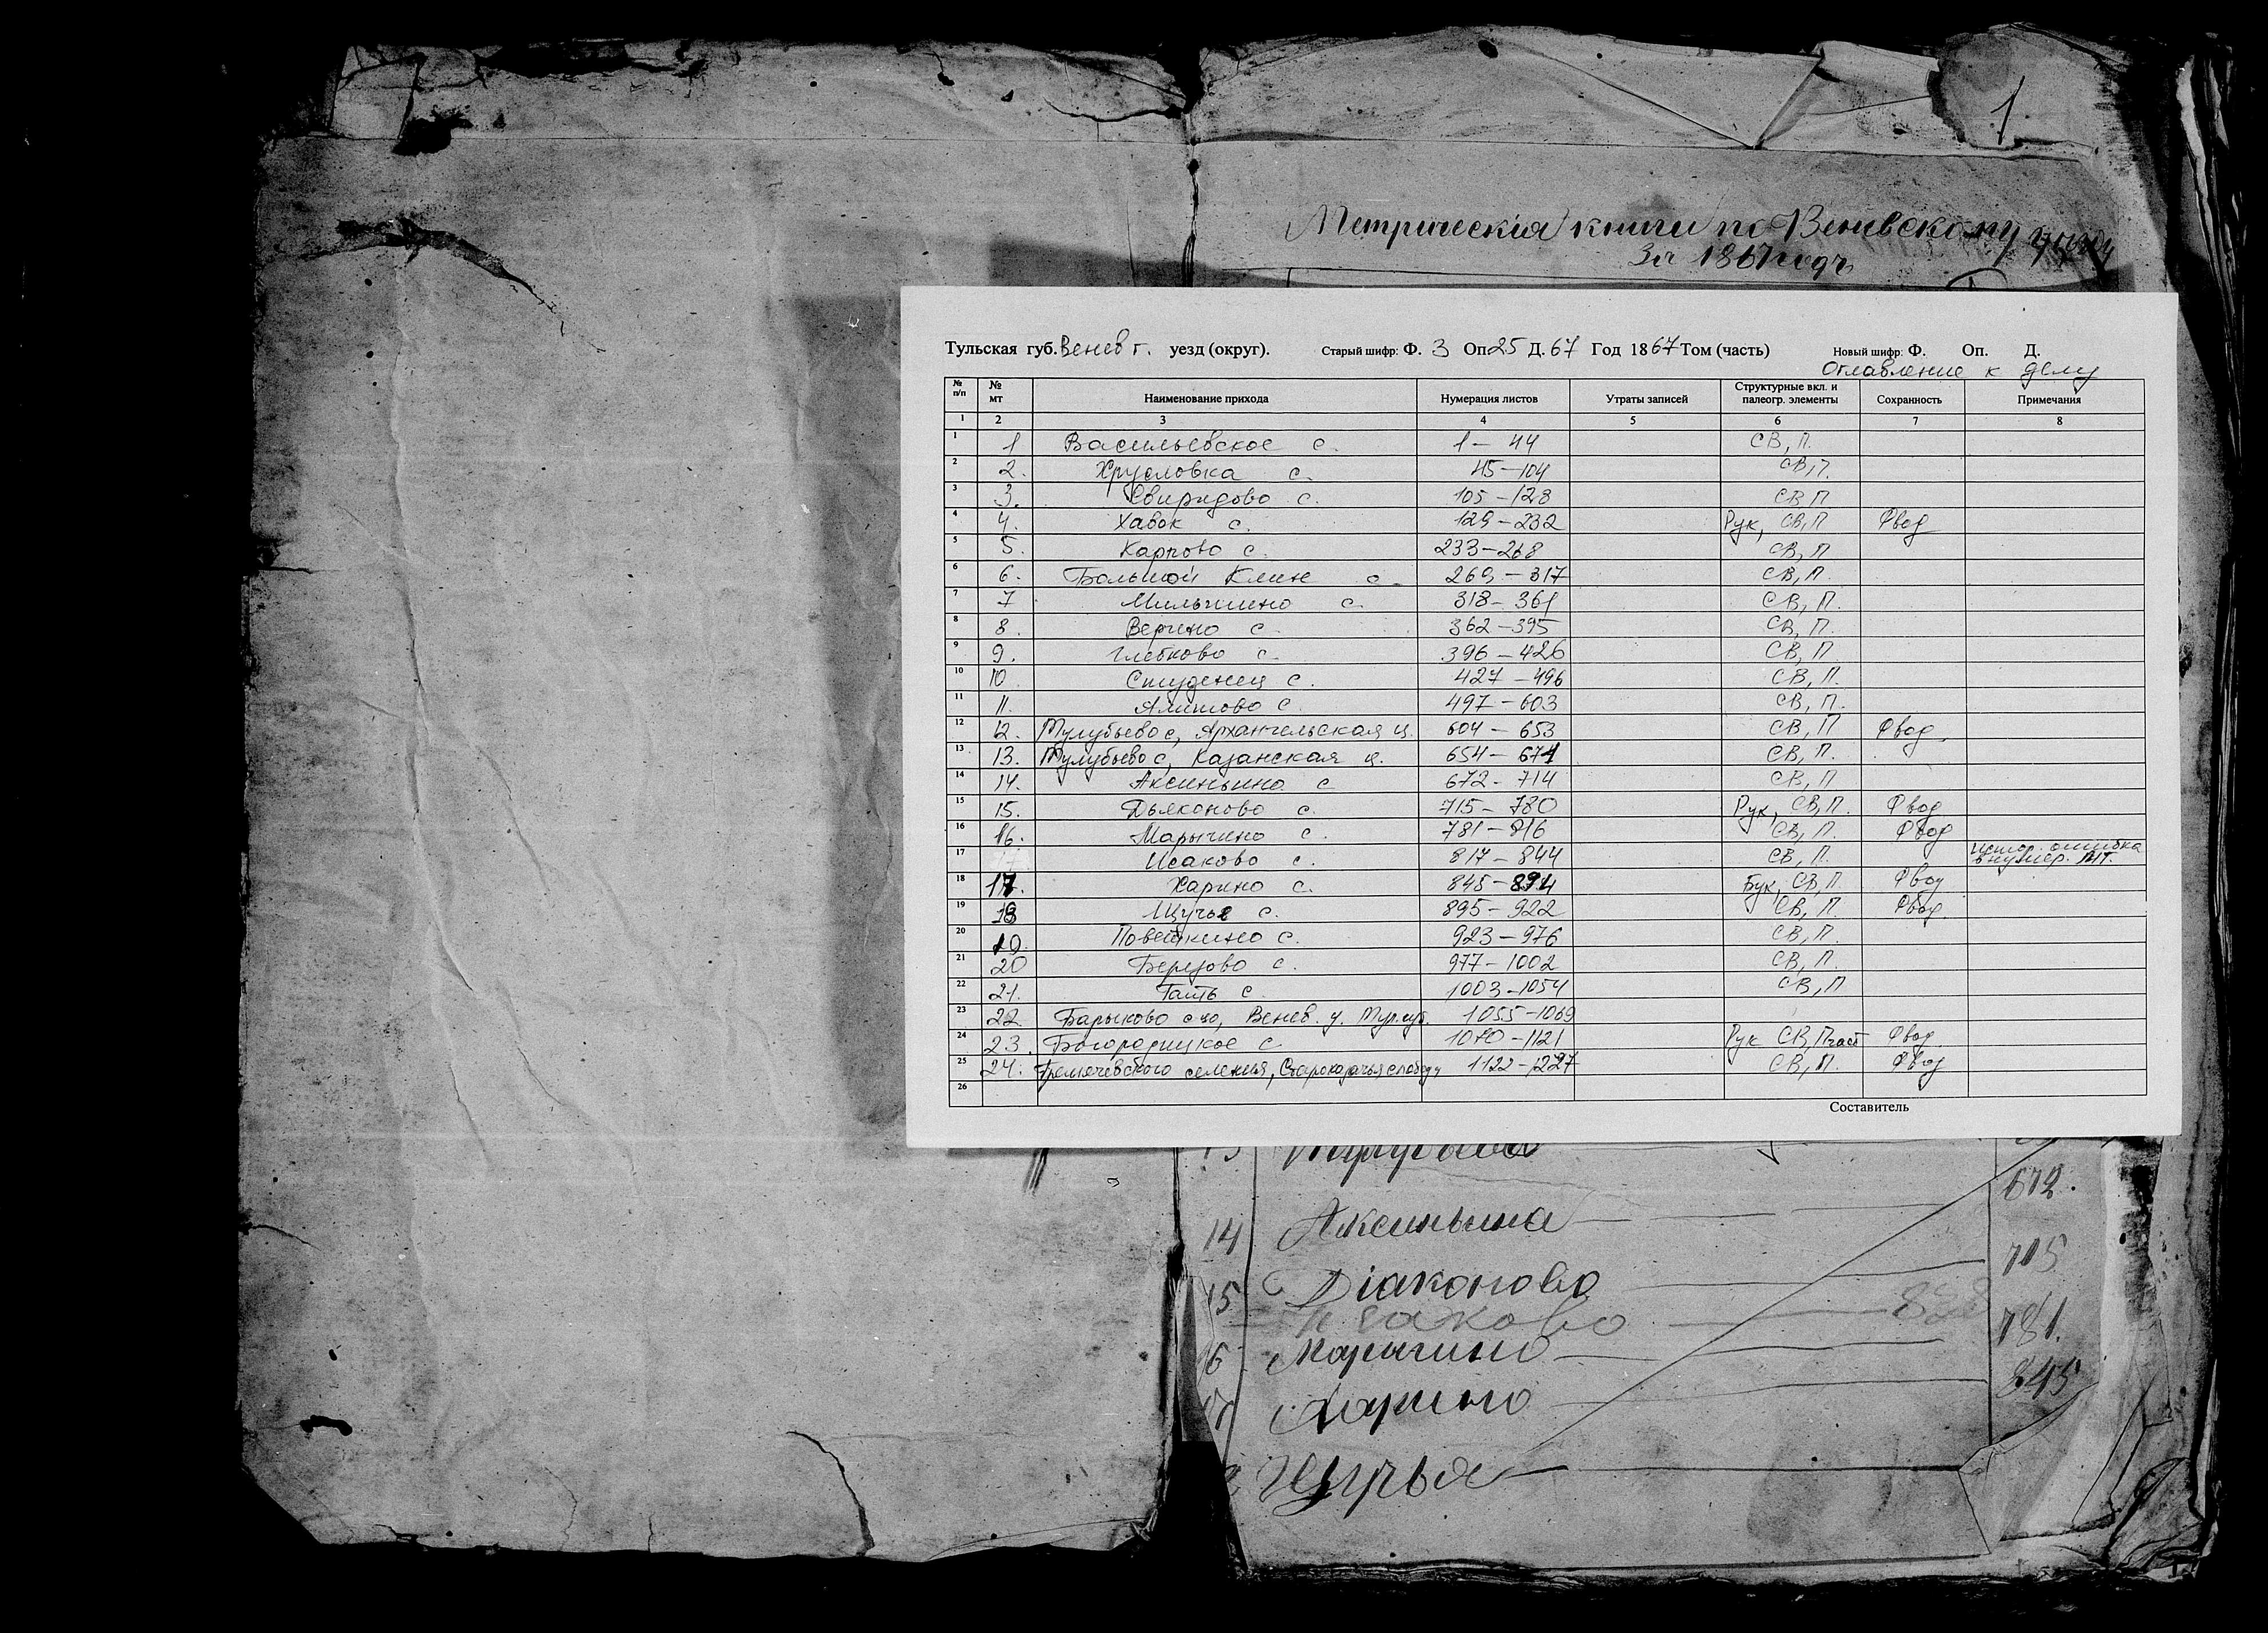 1
Метрическія книги по Веневскому уезду
За 1867 годъ
Тульская губ. Венев г. уезд (округ). Старый шифр: Ф. 3 Оп 25 Д. 67 Год 1867 Том (часть) Новый шифр: Ф. Оп. Д.
Оглавление к делу
№ п/п № мт Наименование прихода Нумерация листов Утраты записей Структурные вкл. и палеогр. элементы Сохранность Примечания
1 2 3 4 5 6 7 8
1 1 Васильевское с. 1 – 44 СВ, П.
2 2. Хрусловка с. 45 – 104 СВ, П.
3 3. Свиридово с. 105 – 128 СВ П
4 4. Хавок с. 129 – 232 Рук, СВ, П Фвод
5 5. Карпово с. 233 – 268 СВ, П
6 6. Большой Клин с. 269 – 317 СВ, П.
7 7 Мильшино с. 318 – 361 СВ, П.
8 8. Веркино с. 362 – 395 СВ, П.
9 9. Глебково с. 396 – 426 СВ, П
10 10 Студенец с. 427 – 496 СВ, П.
11 11. Алитово с. 497 – 603 СВ, П.
12 12. Тулубьево с, Архангельская ц. 604 – 653 СВ, П Фвод.
13 13. Тулубьево с, Казанская ц. 654 – 671 СВ, П.
14 14. Аксиньино с 672 – 714 СВ, П
15 15. Дьяконово с. 715 – 780 Рук, СВ, П. Фвод
16 16. Марыгино с. 781 – 816 СВ, П. Фвод
17 17 Исаково с. 817 – 844 СВ, П. испр. ошибка в нумер. МТ.
18 17. Харино с. 845 – 894 Бук, СВ, П Фвод
19 18 Щучье с. 895 – 922 СВ, П. Фвод.
20 19. Поветкино с. 923 – 976 СВ, П.
21 20 Березово с. 977 – 1002 СВ, П.
22 21. Гать с. 1003 – 1054 СВ, П
23 22. Барыково с-цо, Венев. у. Тул. губ. 1055 – 1069
24 23. Богородицкое с. 1070 – 1121 Рук СВ, Пчаст Фвод.
25 24. Гремячевского селения, Староказачья слобода 1122 – 1227 СВ, П. Фвод
26
Составитель
13 Тулубьево
672.
14 Аксиньина
715
15 Діаконово
Исаково
781.
16 Марыгино
845
Харино
Щучья